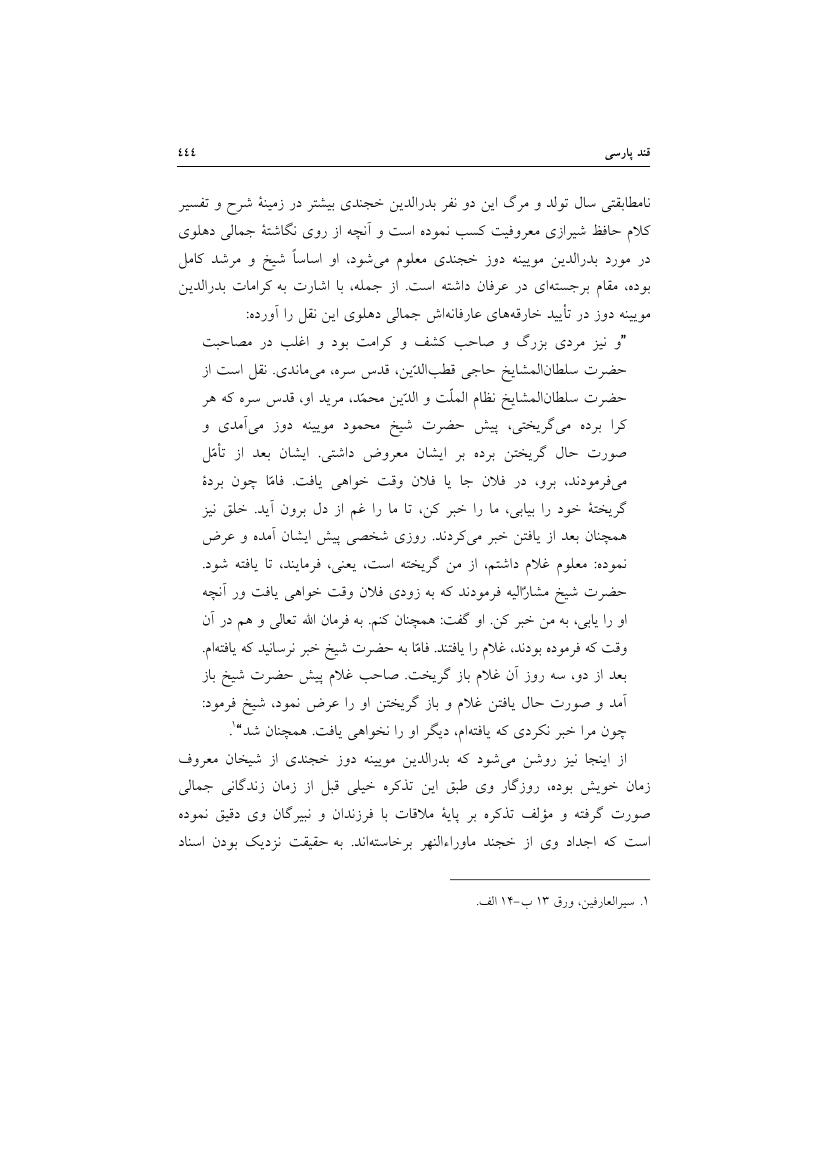 قند پارسی ٤٤٤
نامطابقتی سال تولد و مرگ این دو نفر بدرالدین خجندی بیشتر در زمینهٔ شرح و تفسیر
کلام حافظ شیرازی معروفیت کسب نموده است و آنچه از روی نگاشتهٔ جمالی دهلوی
در مورد بدرالدین مویینه دوز خجندی معلوم می‌شود، او اساساً شیخ و مرشد کامل
بوده، مقام برجسته‌ای در عرفان داشته است. از جمله، با اشارت به کرامات بدرالدین
مویینه دوز در تأیید خارقه‌های عارفانه‌اش جمالی دهلوی این نقل را آورده:
”و نیز مردی بزرگ و صاحب کشف و کرامت بود و اغلب در مصاحبت
حضرت سلطان‌المشایخ حاجی قطب‌الدّین، قدس سره، می‌ماندی. نقل است از
حضرت سلطان‌المشایخ نظام الملّت و الدّین محمّد، مرید او، قدس سره که هر
کرا برده می‌گریختی، پیش حضرت شیخ محمود مویینه دوز می‌آمدی و
صورت حال گریختن برده بر ایشان معروض داشتی. ایشان بعد از تأمّل
می‌فرمودند، برو، در فلان جا یا فلان وقت خواهی یافت. فامّا چون بردهٔ
گریختهٔ خود را بیابی، ما را خبر کن، تا ما را غم از دل برون آید. خلق نیز
همچنان بعد از یافتن خبر می‌کردند. روزی شخصی پیش ایشان آمده و عرض
نموده: معلوم غلام داشتم، از من گریخته است، یعنی، فرمایند، تا یافته شود.
حضرت شیخ مشارٌالیه فرمودند که به زودی فلان وقت خواهی یافت ور آنچه
او را یابی، به من خبر کن. او گفت: همچنان کنم. به فرمان الله تعالی و هم در آن
وقت که فرموده بودند، غلام را یافتند. فامّا به حضرت شیخ خبر نرسانید که یافته‌ام.
بعد از دو، سه روز آن غلام باز گریخت. صاحب غلام پیش حضرت شیخ باز
آمد و صورت حال یافتن غلام و باز گریختن او را عرض نمود، شیخ فرمود:
چون مرا خبر نکردی که یافته‌ام، دیگر او را نخواهی یافت. همچنان شد“۱.
از اینجا نیز روشن می‌شود که بدرالدین مویینه دوز خجندی از شیخان معروف
زمان خویش بوده، روزگار وی طبق این تذکره خیلی قبل از زمان زندگانی جمالی
صورت گرفته و مؤلف تذکره بر پایهٔ ملاقات با فرزندان و نبیرگان وی دقیق نموده
است که اجداد وی از خجند ماوراءالنهر برخاسته‌اند. به حقیقت نزدیک بودن اسناد
۱. سیرالعارفین، ورق ۱۳ ب-۱۴ الف.